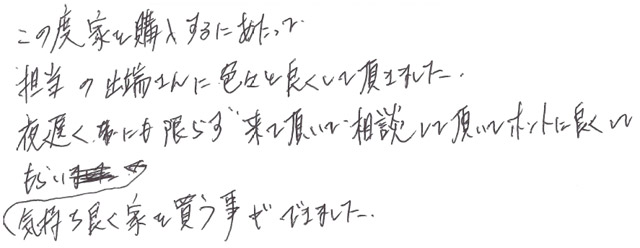 この度家を購入するにあたって
担当の出端さんに色々と良くして頂きました.
夜遅くにも限らず来て頂いて相談して頂いてホントに良くして
もらい
気持ち良く家を買う事ができました.